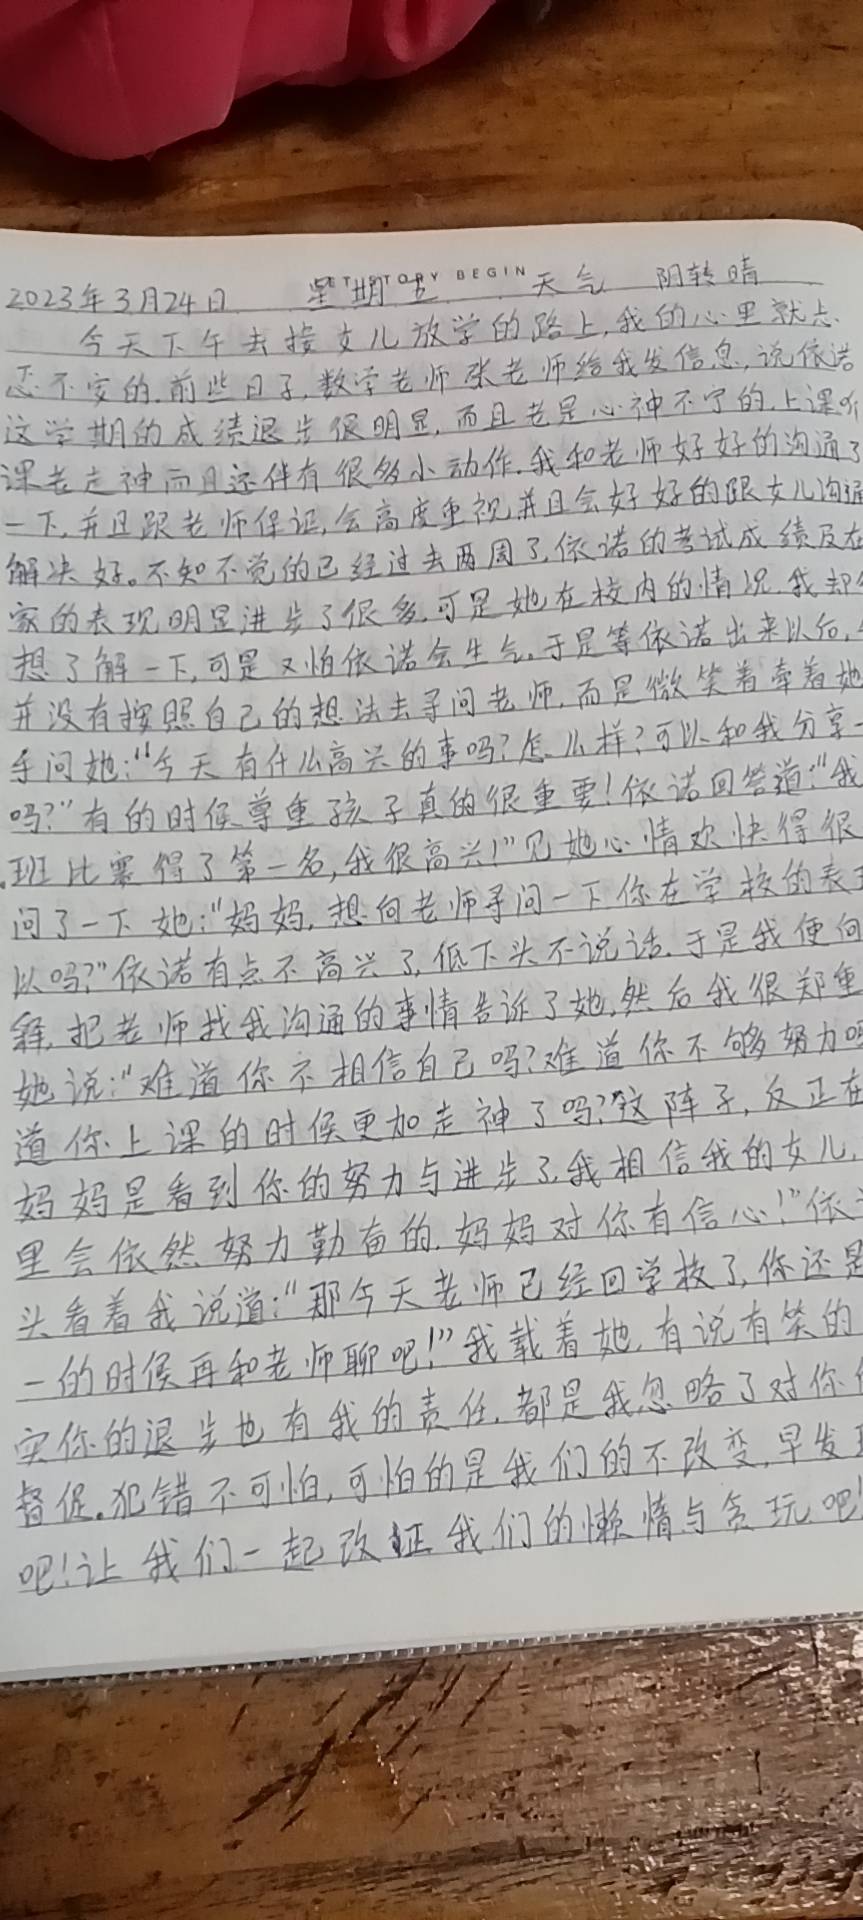 LET STORY BEGIN
2023年3月24日 星期五 天气 阴转晴
今天下午去接女儿放学的路上,我的心里就忐
忑不安的.前些日子,数学老师张老师给我发信息,说依诺
这学期的成绩退步很明显,而且老是心神不宁的.上课听
课老走神而且还伴有很多小动作.我和老师好好的沟通了
一下,并且跟老师保证,会高度重视并且会好好的跟女儿沟通
解决好。不知不觉的已经过去两周了,依诺的考试成绩及在
家的表现明显进步了很多.可是她在校内的情况.我却
想了解一下,可是又怕依诺会生气.于是等依诺出来以后,
并没有按照自己的想法去寻问老师,而是微笑着牵着她
手问她:"今天有什么高兴的事吗?怎么样?可以和我分享一
吗?"有的时候尊重孩子真的很重要!依诺回答道:"我
班比赛得了第一名,我很高兴!"见她心情欢快得很
问了一下她:"妈妈,想向老师寻问一下你在学校的表
以吗?"依诺有点不高兴了,低下头不说话.于是我便向
释,把老师找我沟通的事情告诉了她,然后我很郑重
她说:"难道你不相信自己吗?难道你不够努力吗
道你上课的时候更加走神了吗?"这阵子,反正在
妈妈是看到你的努力与进步了.我相信我的女儿,
里会依然努力勤奋的.妈妈对你有信心!"依
头看着我说道:"那今天老师已经回学校了,你还是
一的时候再和老师聊吧!"我载着她,有说有笑的
实你的退步也有我的责任.都是我忽略了对你
督促。犯错不可怕,可怕的是我们的不改变.早发
吧!让我们一起改正我们的懒惰与贪玩吧!